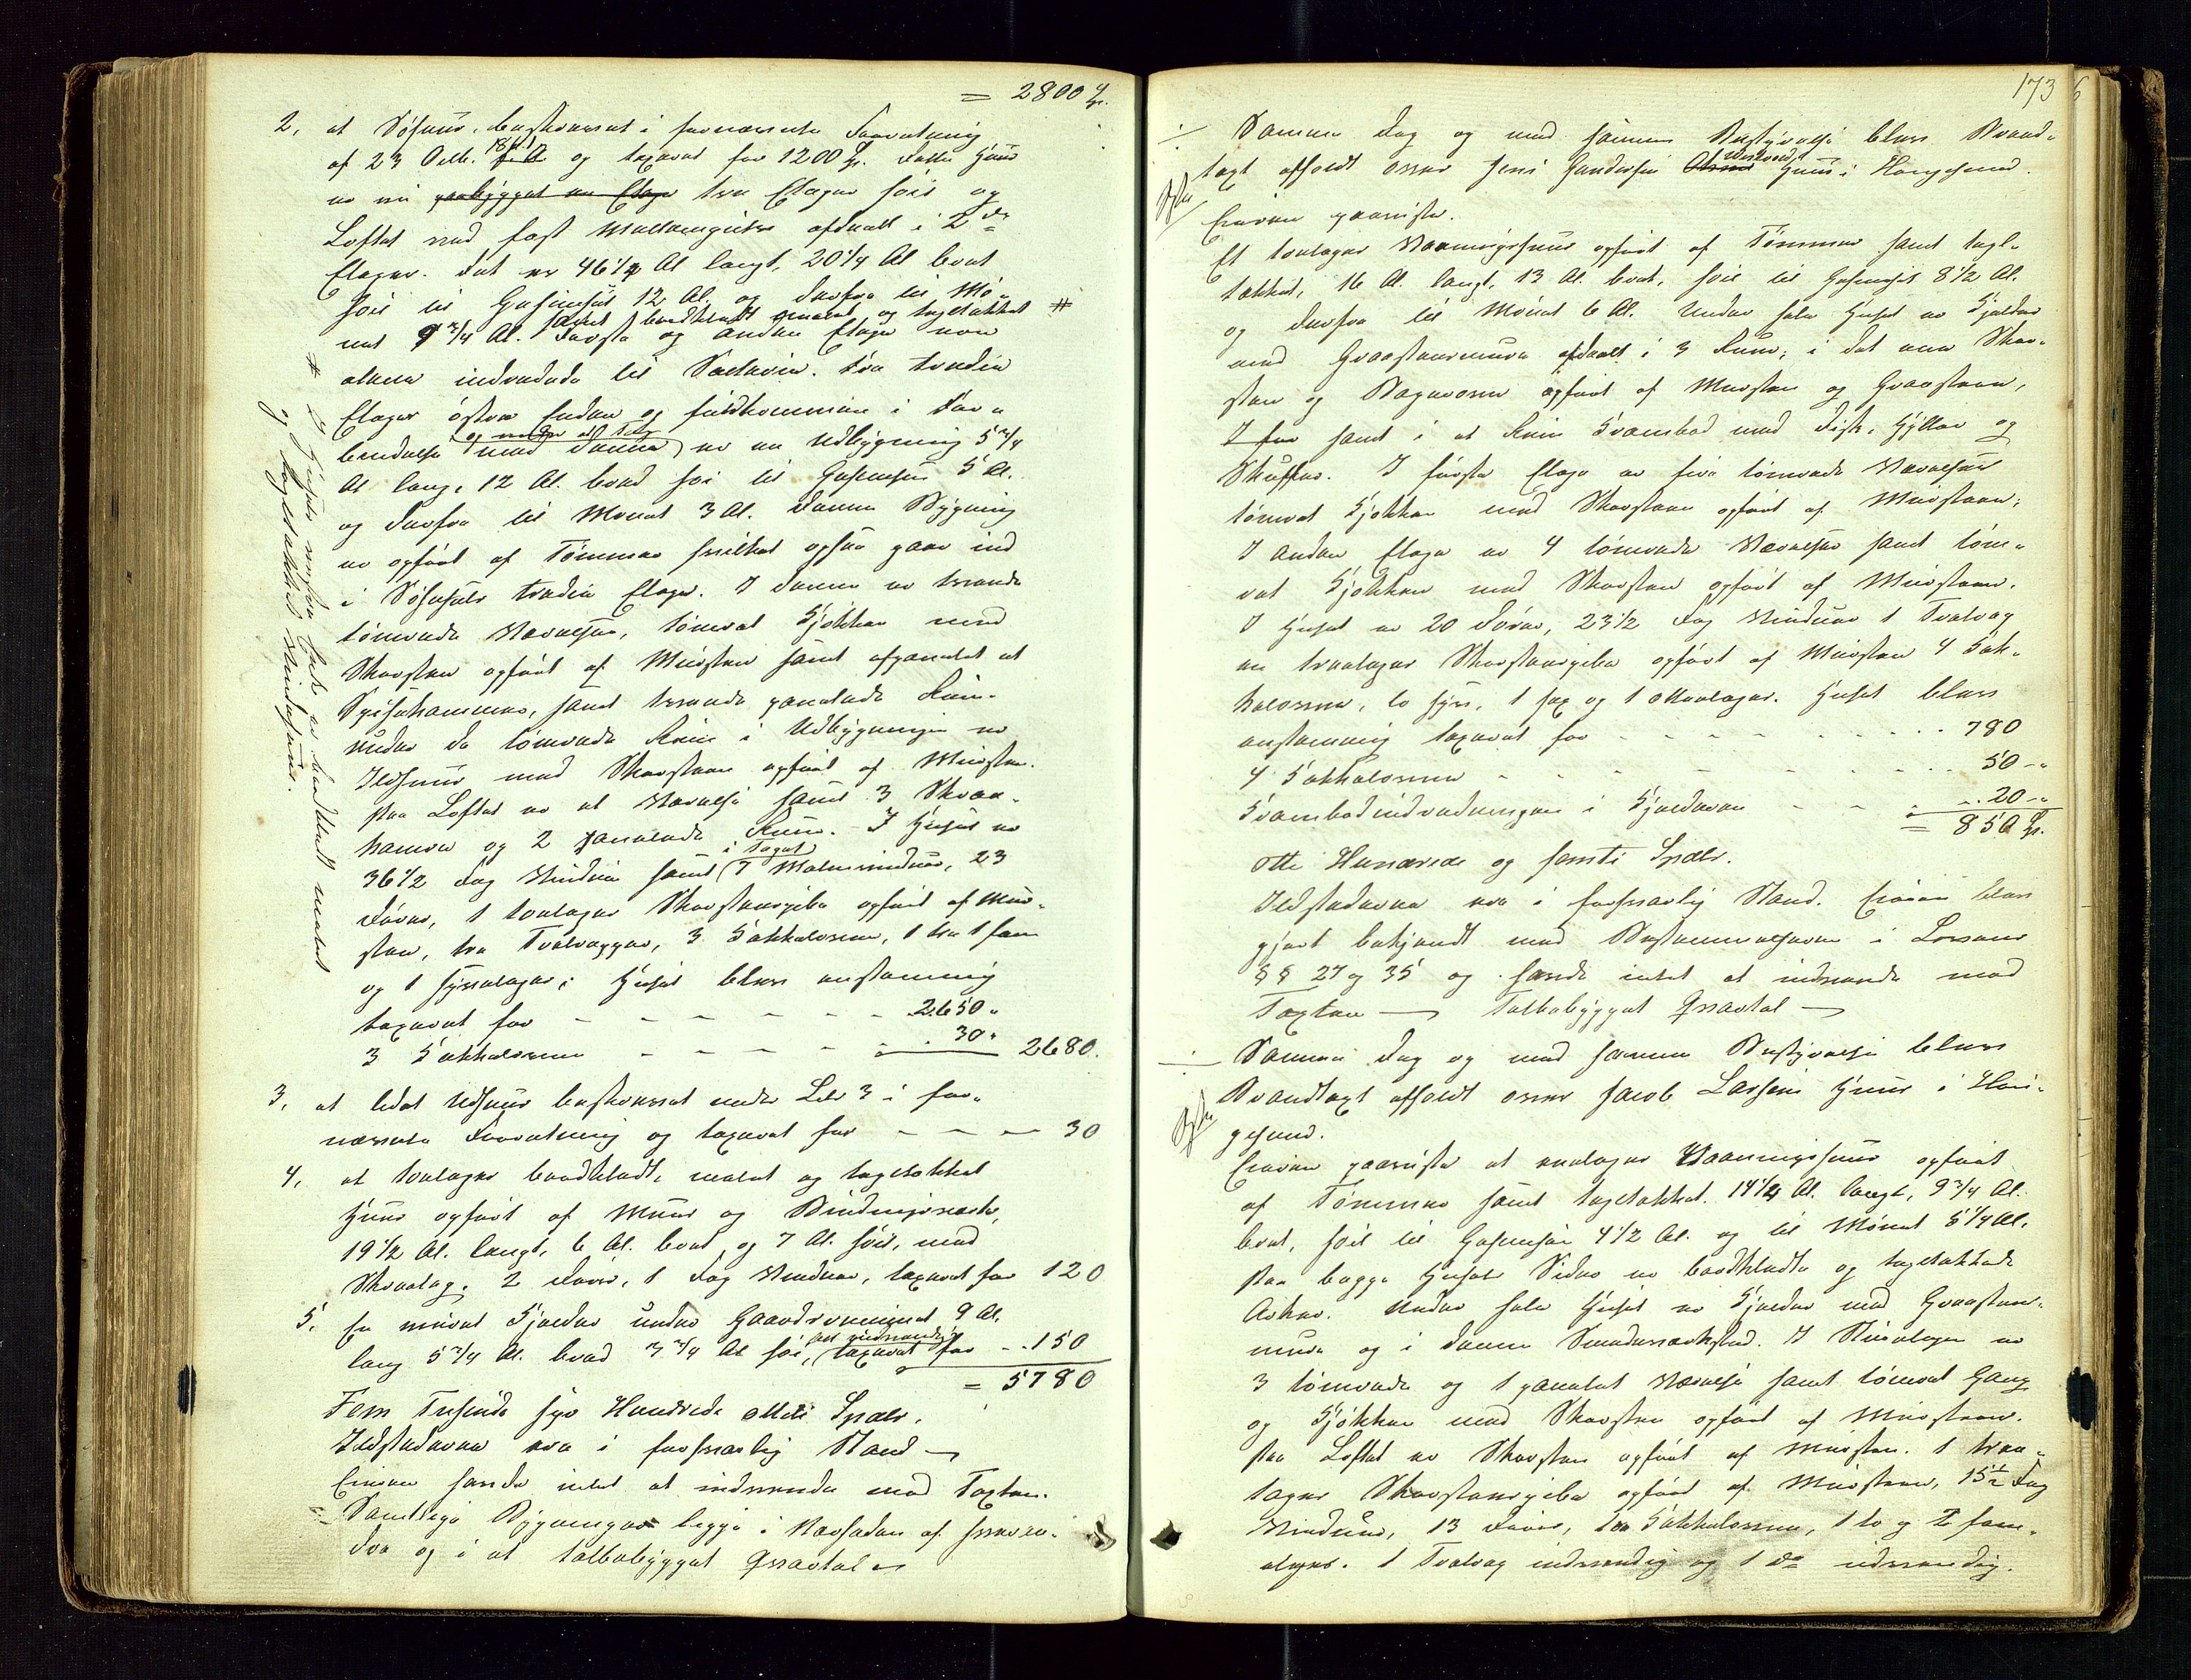 = 2800 Sp.
2, et Söehuus, beskrevet i fornævnte Forretning
af 23 Octb. 1861 og taxeret for 1200 Sp. Dette Huus
er nu paabygget en Etage tre Etager høit og
Loftet med fast Mellemgulv afdeelt i 2de
Etager. Det er 46 1/2 Al langt, 20 1/4 Al bredt
høit til Gesimsen 12 Al. og derfra til Mö-
net 9 3/4 Al. Første og anden Etage ere #
bordklædt malet og tagstækket
alene indredede til Söeboder. Den tredie
Etages östre Ende og fuldkommen i For-
bindelse med denne er en Udbygning 5 3/4
Al lang, 12 Al. bred høi til Gesimsen 5 Al.
og derfra til Mönet 3 Al. Denne Bygning
er opført af Tömmer hvilket ogsaa gaar ind
i Söehusets tredie Etage. I denne er trende
tömrede Værelser, tömret Kjökken med
Skorsteen opført af Muursteen samt afpanelet et
Spiisekammer, samt trende panelede Rum.
Under de tömrede Rum i Udbygningen er
Ildhuus med Skorsteen opført af Muursteen.
Paa Loftet er et Værelse samt 3 Skraa-
kamre og 2 panelede Rum. I Huset er
36 1/2 Fag Vinduer samt 7 Malmvinduer, 23
i Taget
Döre, 1 toetages Skorsteenspibe opført af Muur-
steen, tre Tralvegger, 3 Kakkelovne, 1 tre 1 fem
og 1 syvetages; Huset blev enstemmig
taxeret for - - - - - - 2650 "
3 Kakkelovne - - - - - 30 " 2680.
3, et lidet Udhuus beskrevet under Litr 3 i for-
nævnte Forretning og taxeret for - - - 30
4, et toetages bordklædt, malet og tagstækket
Huus opført af Muur og Bindingsværk,
19 1/2 Al. langt, 6 Al. bredt og 7 Al. höit, med
2 Döre, 1 Fag Vinduer, taxeret for 120
5, En muret Kjelder under Gaardsrummet 9 Al.
lang 5 3/4 Al. bred 3 3/4 Al høi, taxeret for - . 150
= 5780
Fem Tusinde syv Hundrede otteti Spdlr.
Ildstederne ere i forsvarlig Stand —
Eieren havde intet at indvende mod Taxten.
Samtlige Bygninger ligge i Nærheden af hveran-
dre og i et tætbebygget Qvartal —
# 2 Husets vestre Ende er bordklædt malet
og tagstækket
173
÷ Samme Dag og med samme Bestyrelse blev Brand-
taxt afholdt over Jens Sandersens Huus i Haugesund.
Eieren paaviste.
Et toetages Vaaningshuus opført af Tömmer samt tagl-
tækket, 16 Al. langt, 13 Al. bredt, höit til Gesimsen 8 1/2 Al.
og derfra til Mönet 6 Al. Under hele Huset er Kjelder
med Graasteensmure afdeelt i 3 Rum; i det ene Skor-
steen og Bagerovn opført af Muursteen og Graasteen,
I før samt i et Rum Krambod med Disk, Hyller og
Skuffer. I første Etage er fire tömrede Værelser
tömret Kjökken med Skorsteen opført af Muursteen;
I anden Etage er 4 tömrede Værelser samt töm-
ret Kjökken med Skorsteen opført af Muursteen.
I Huset er 20 Döre, 23 1/2 Fag Vinduer 1 Tralveg
en treetages Skorsteenspibe opført af Muursteen 4 Kak-
kelovne, to fyr, 1 sex og 1 otteetages. Huset blev
enstemmig taxeret for - - - - - - 780
4 Kakkelovne - - - - - - 50 - "
Krambodindredningen i Kjelderen - - - . 20 - "
= 850 Sp.
otte Hundrede og femti Spdlr.
Ildstederne ere i forsvarlig Stand. Eieren blev
gjort bekjendt med Bestemmelserne i Lovens
§§ 27 og 35 og havde intet at indvende mod
Taxten — Tætbebygget Qvartal —
÷ Samme Dag og med samme Bestyrelse blev
Brandtaxt afholdt over Jacob Larsens Huus i Hau-
gesund.
Eieren paaviste et enetages Vaaningshuus opført
af Tömmer samt tagstækket. 14 1/2 Al. langt, 9 3/4 Al.
bredt, höit til Gesimsen 4 1/2 Al. og til Mönet 5 1/4 Al.
Paa begge Husets Sider er bordklædte og tagstækkede
Arker. Under hele Huset er Kjelder med Graasteens-
mure og i denne Snedkerværksted. I Stueetagen er
3 tömrede og 1 panelet Værelse samt tömret Gang
og Kjökken med Skorsteen opført af Muursteen.
Paa Loftet er Skorsteen opført af Muursteen. 1 tree-
tages Skorsteenspibe opført af Muursteen, 15 1/2 Fag
Vinduer, 13 Döre, tre Kakkelovne, 1 to og 2 fem-
etages. 1 Tralveg indvendig og 1 do udvendig.